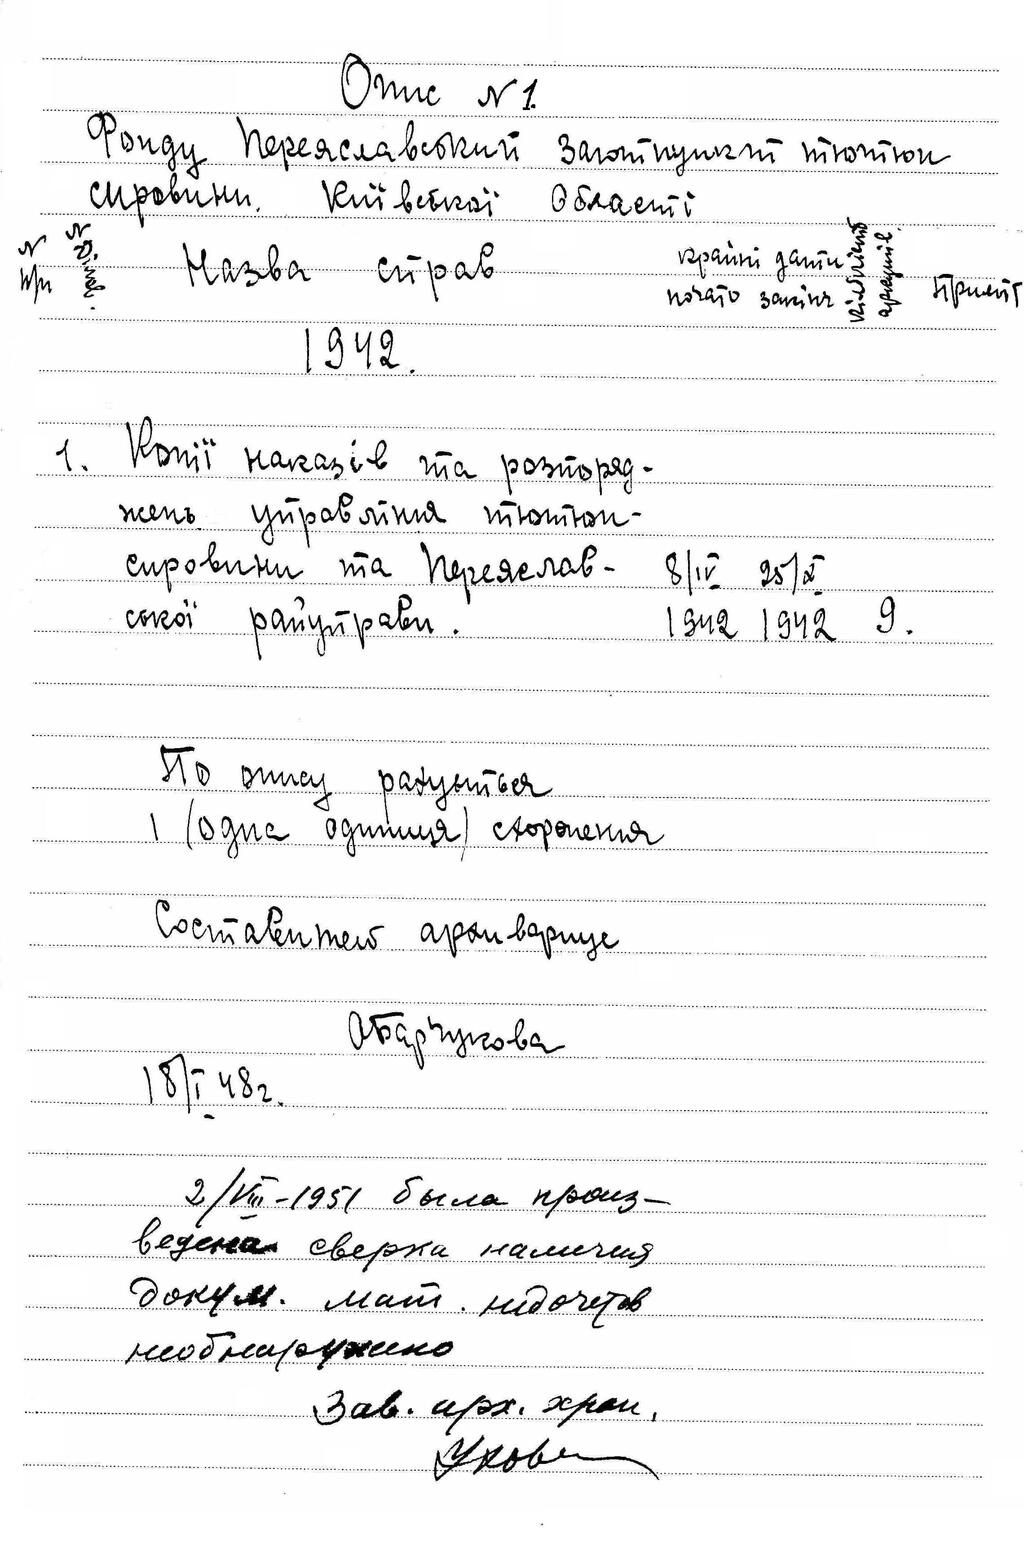 Опис N 1.
Фонду Переяславський Заготпункт тютюн
сировини. Київської Області
N п/п N справ. Назва справ крайні дати кількість аркушів. Приміт
почато закінч
1942.
1. Копії наказів та розпоряд-
жень управління тютюн-
сировини та Переяслав- 8/IV 25/X
ської райуправи. 1942 1942 9.
По опису рахується
1 (одна одиниця) сохронения
Составитель архивариус
18/I 48г.
2/VIII-1951 была произ-
ведена сверка наличия
докум. мат. недочетов
необнаружено
Зав. арх. хран.